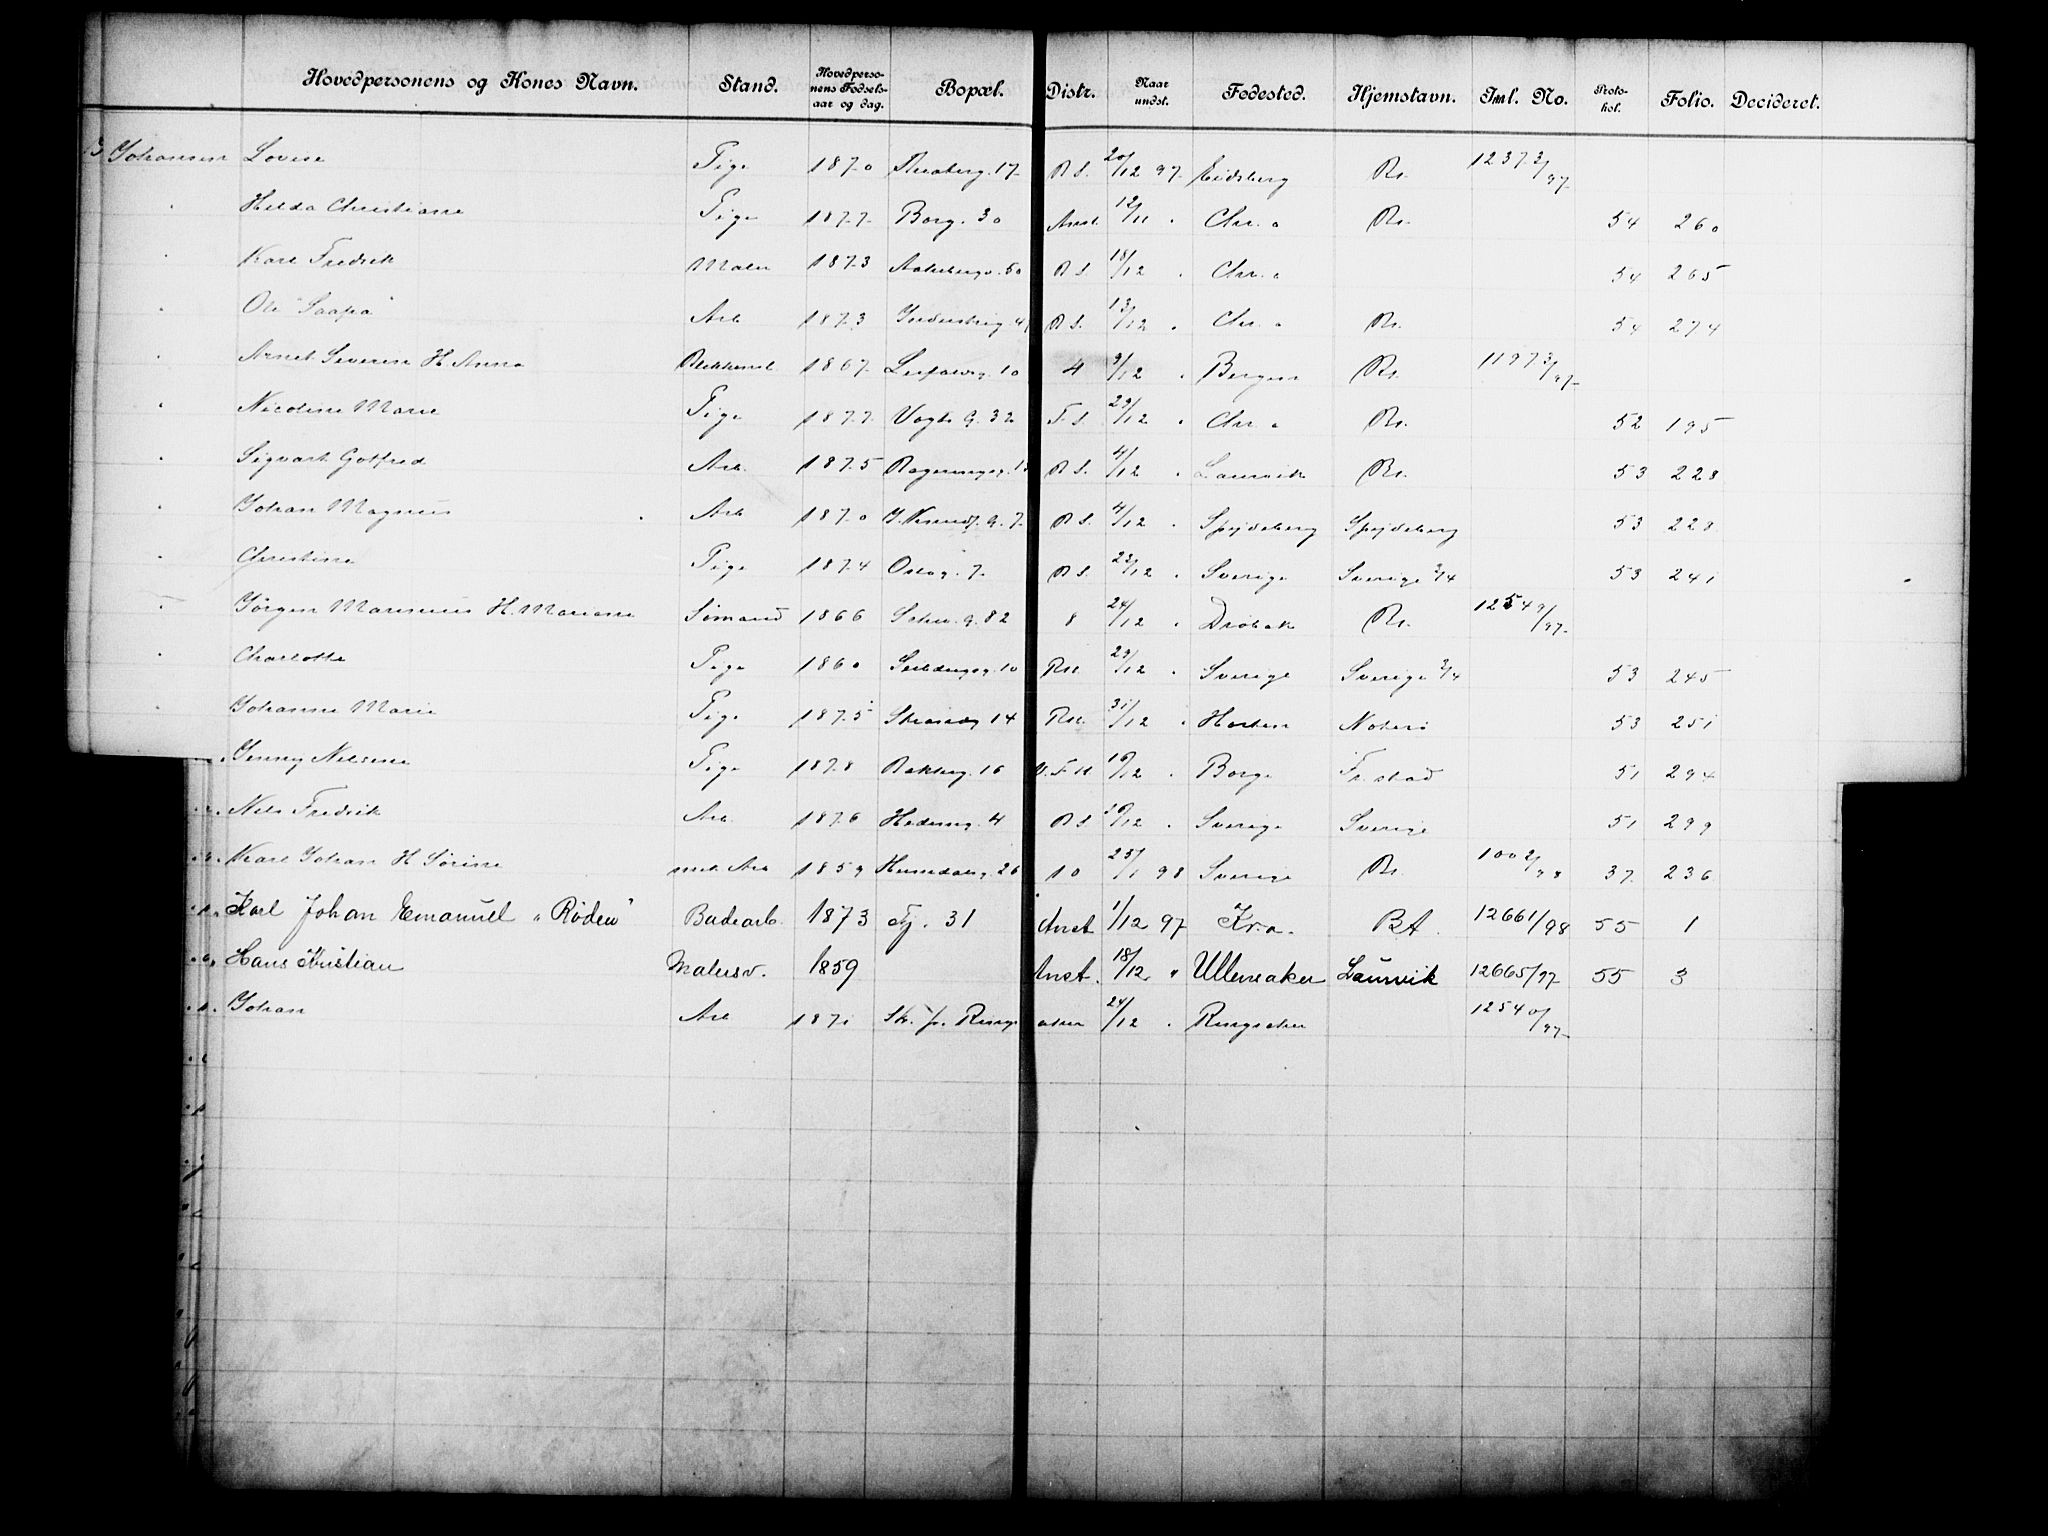 Hovedpersonens og Kones Navn. Stand. Hovedpersonens Fødselsaar og dag. Bopæl. Distr. Naar undst. Fødested. Hjemstavn. Iml. No. Protokol. Folio. Decideret.
Johansen Lovise Pige 1870 17 R S. 20/12 97 Eidsberg Kr. 12373/97
" Hilda Christiane Pige 1877 Borg. 30 Anst. 12/11 " Chr. a Kr. 54 260
" Karl Fredrik Maler 1873 Aakebergv. 50 R S. 18/12 " Chr. a 54 265
" Ole "Saapa" Arb 1873 Industrig. 4 R S. 13/12 " Chr. a Kr. 54 274
" Arnt Severin H. Anna Blikkensl 1867 10 4 9/12 " Bergen Kr. 11973/97
" Nicoline Marie Pige 1877 Vogts G. 32 F. S. 29/12 " Chr. a Kr. 52 195
" Sigvart Gotfred Arb. 1875 R S. 4/12 " Laurvik Kr. 53 228
" Johan Magnus Arb 1870 G. 7. R S. 4/12 " Spydeberg Spydeberg 53 228
" Christine Pige 1874 Oslog. 7. R S. 22/12 " Sverige Sverige 3/4 53 241
" Jørgen Marinius H. Mariane Sømand 1866 Schw. G. 82 8 24/12 " Drøbak Kr. 12549/97
" Charlotte Pige 1860 Seildugsg. 10 29/12 " Sverige Sverige 3/4 53 245
" Johanne Marie Pige 1875 Strandg 14 31/12 " Horten Noterø 53 251
" Jenny Nilsine Pige 1878 Bakkeg. 16 V. F H 16/12 " Borge Fr. stad 51 294
" Nils Fredrik Arb. 1876 Hedemg. 4 R S 30/12 " Sverige Sverige 51 299
" Karl Johan H Sørine Arb 1859 Hurndalsg. 26 10 25/1 98 Sverige Kr. 1002/98 37 236
" Karl Johan Emanuel "Røden" Badearb. 1873 Fj. 31 Anst 1/12 97 Kr.a. BA. 12661/98 55 1
" Hans Kristian Malersv. 1859 Anst. 18/12 " Ullensaker Laurvik 12665/97 55 3
" Johan Arb 1871 St. p. Rings aker 24/12 " Ringsaker 12540/97